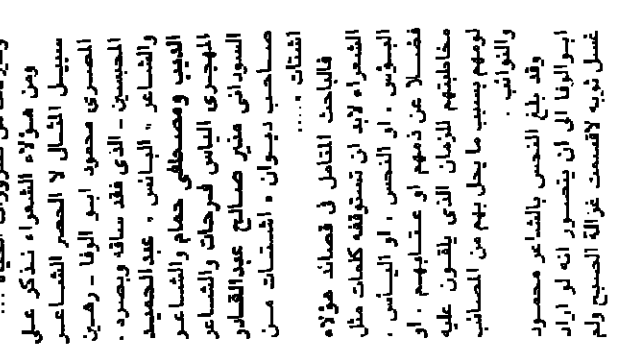 ومن هؤلاء الشعراء نذكر على
سبيل المثال لا الحصر الشاعر
المصرى محمود ابو الوفا - رهين
المحبسين - الذى فقد ساقه وبصره .
والشاعر ، البائس ، عبد الحميد
الديب ومصطفى حمام والشاعر
المهجرى الياس فرحات والشاعر
السودانى منير صالح عبدالقادر
صاحب ديوان ، اشتات من
اشتات ، ...
فالباحث المتأمل فى قصائد هؤلاء
الشعراء لابد ان تستوقفه كلمات مثل
البؤس ، او النحس ، او اليأس ،
فضلا عن ذمهم او عتابهم ، او
مخاطبتهم للزمان الذى يلقون عليه
لومهم بسبب ما يحل بهم من المصائب
والنوائب .
وقد بلغ النحس بالشاعر محمود
ابو الوفا الى ان يتصور انه لو اراد
غسل ثوبه لاقسمت غزالة الصبح ولم